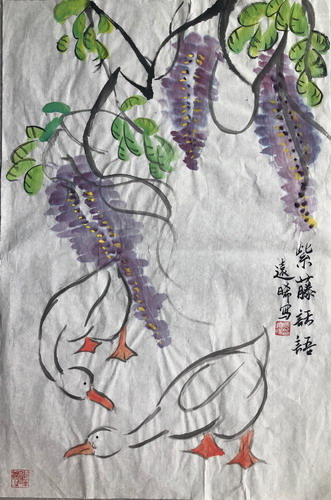 紫藤話語
遠晞写